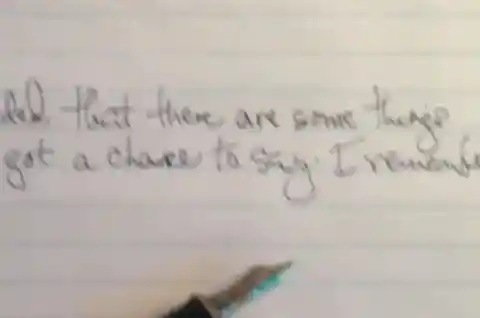 that there are some things
got a chance to say. I remembe